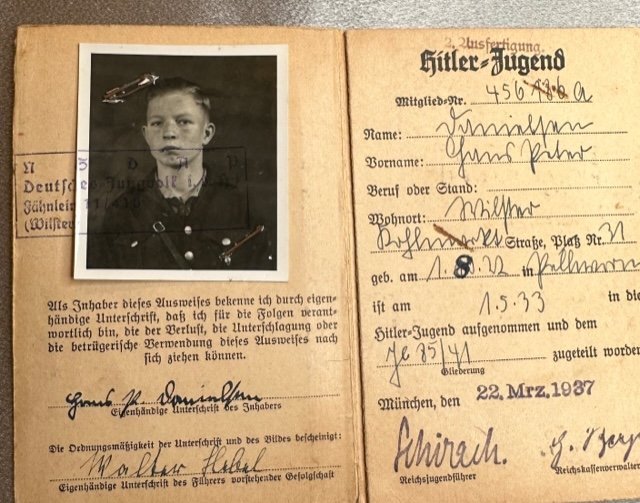 N S D A P
Deutsches Jungvolk i. d.
Fähnlein 11/410
(Wilster
Als Inhaber dieses Ausweises bekenne ich durch eigen-
händige Unterschrift, daß ich für die Folgen verant-
wortlich bin, die der Verlust, die Unterschlagung oder
die betrügerische Verwendung dieses Ausweises nach
sich ziehen können.
Hans P. Danielsen
Eigenhändige Unterschrift des Inhabers
Die Ordnungsmäßigkeit der Unterschrift und des Bildes bescheinigt:
Walter
Eigenhändige Unterschrift des Führers vorstehender Gefolgschaft
2. Ausfertigung.
Hitler-Jugend
Mitglied-Nr. 456 186 A
Name: Danielsen
Vorname: Hans Peter
Beruf oder Stand:
Wohnort: Wilster
Kohlmarkt Straße, Platz Nr. 31
geb. am 1. 8. 22 in Pellworm
ist am 1.5.33 in die
Hitler-Jugend aufgenommen und dem
35/41 zugeteilt worden
Gliederung
München, den 22. Mrz. 1937
Schirach.
Reichsjugendführer Reichskassenverwalter